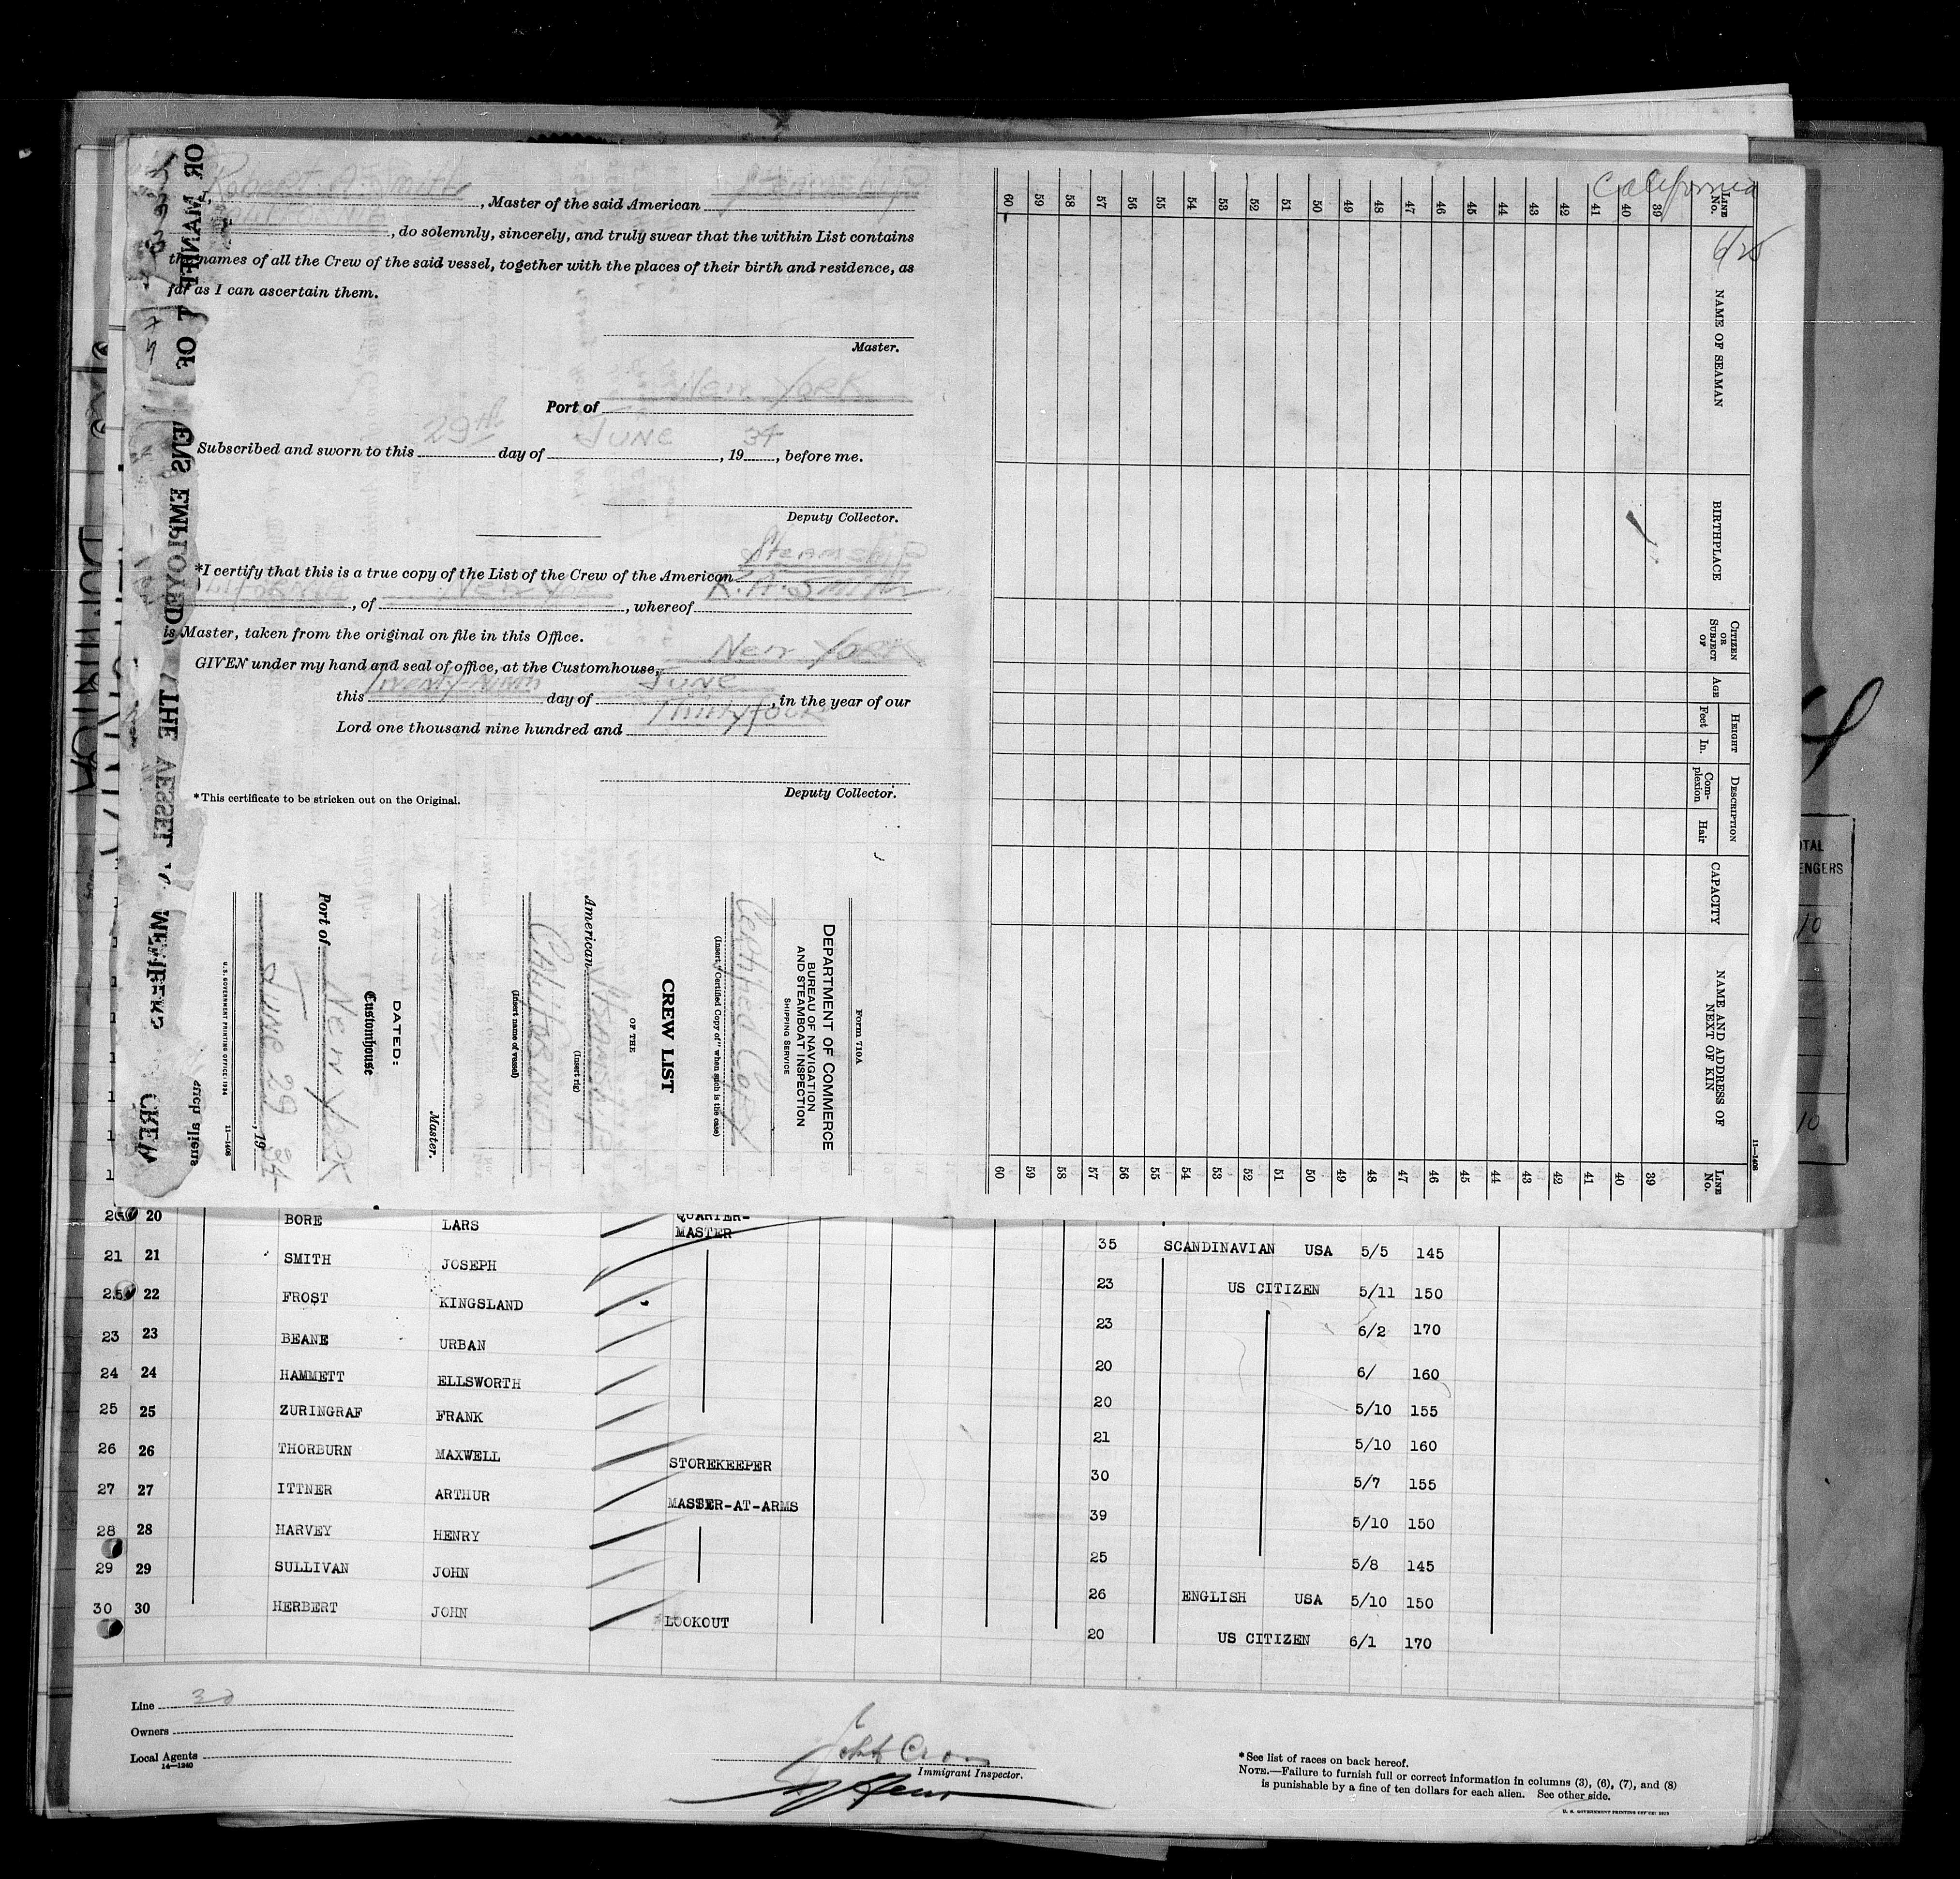 Robert A. Smith, Master of the said American Steamship
CALIFORNIA, do solemnly, sincerely, and truly swear that the within List contains
the names of all the Crew of the said vessel, together with the places of their birth and residence, as
far as I can ascertain them.
Master.
Port of New York
Subscribed and sworn to this 29th day of June, 1934, before me.
Deputy Collector.
*I certify that this is a true copy of the List of the Crew of the American Steamship
California, of New York, whereof R. A. Smith
is Master, taken from the original on file in this Office.
GIVEN under my hand and seal of office, at the Customhouse, New York
this Twenty-Ninth day of June, in the year of our
Lord one thousand nine hundred and Thirty four
Deputy Collector.
*This certificate to be stricken out on the Original.
Form 710A
DEPARTMENT OF COMMERCE
BUREAU OF NAVIGATION
AND STEAMBOAT INSPECTION
SHIPPING SERVICE
Certified Copy
(Insert "Certified Copy of" when such is the case)
CREW LIST
OF THE
American Steamship
(Insert rig)
California
(Insert name of vessel)
Master.
DATED:
Customhouse
Port of New York
June 29, 1934
U.S. GOVERNMENT PRINTING OFFICE: 1934 11—1408
California
6/25
LINE No. NAME OF SEAMAN BIRTHPLACE CITIZEN OR SUBJECT OF AGE HEIGHT Feet In. DESCRIPTION Complexion Hair CAPACITY NAME AND ADDRESS OF NEXT OF KIN LINE No.
39 39
40 40
41 41
42 42
43 43
44 44
45 45
46 46
47 47
48 48
49 49
50 50
51 51
52 52
53 53
54 54
55 55
56 56
57 57
58 58
59 59
60 60
11—1408
OTAL
ENGERS
10
10
20 20 BORE LARS QUARTER-MASTER 35 SCANDINAVIAN USA 5/5 145
21 21 SMITH JOSEPH 23 US CITIZEN 5/11 150
22 FROST KINGSLAND 23 6/2 170
23 23 BEANE URBAN 20 6/ 160
24 24 HAMMETT ELLSWORTH 20 5/10 155
25 25 ZURINGRAF FRANK 21 5/10 160
26 26 THORBURN MAXWELL STOREKEEPER 30 5/7 155
27 27 ITTNER ARTHUR MASTER-AT-ARMS 39 5/10 150
28 28 HARVEY HENRY 25 5/8 145
29 29 SULLIVAN JOHN 26 ENGLISH USA 5/10 150
30 30 HERBERT JOHN LOOKOUT 20 US CITIZEN 6/1 170
Line 30
Owners
Local Agents
14—1240
Immigrant Inspector.
*See list of races on back hereof.
NOTE.—Failure to furnish full or correct information in columns (3), (6), (7), and (8)
is punishable by a fine of ten dollars for each alien. See other side.